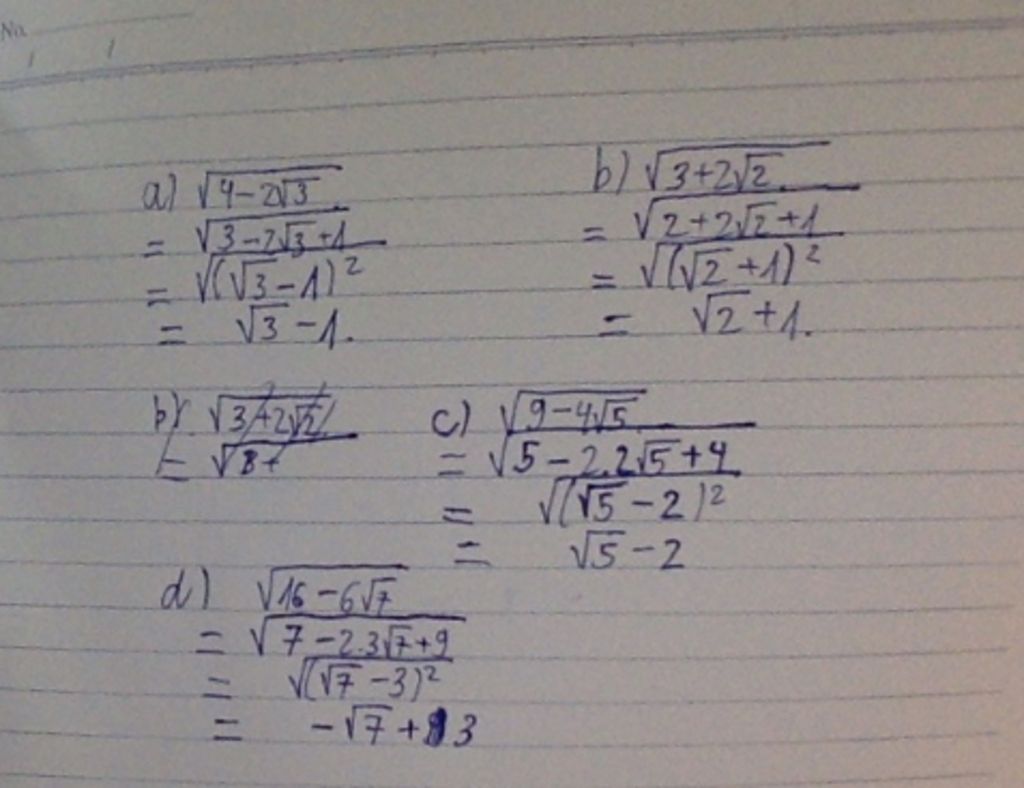 No.
a) √(4-2√3)
= √(3-2√3+1)
= √((√3-1)²)
= √3-1.
b) √(3+2√2)
= √(2+2√2+1)
= √((√2+1)²)
= √2+1.
b) √(3+2√2)
= √(8+
c) √(9-4√5)
= √(5-2.2√5+4)
= √((√5-2)²)
= √5-2
d) √(16-6√7)
= √(7-2.3√7+9)
= √((√7-3)²)
= -√7+3